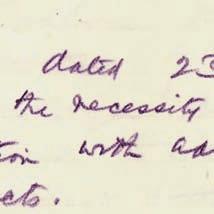 dated 23
the necessity
tion with ad
cts.